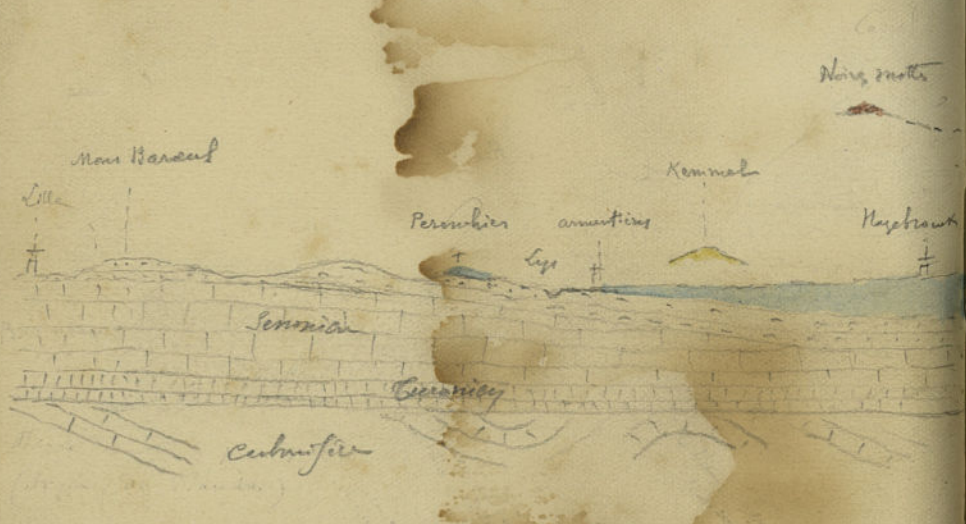 Noires mottes
Mons Baroeul
Kemmel
Lille
Perenchies
armentières
Hazebrouck
Lys
Senonien
Turonien
Carbonifère